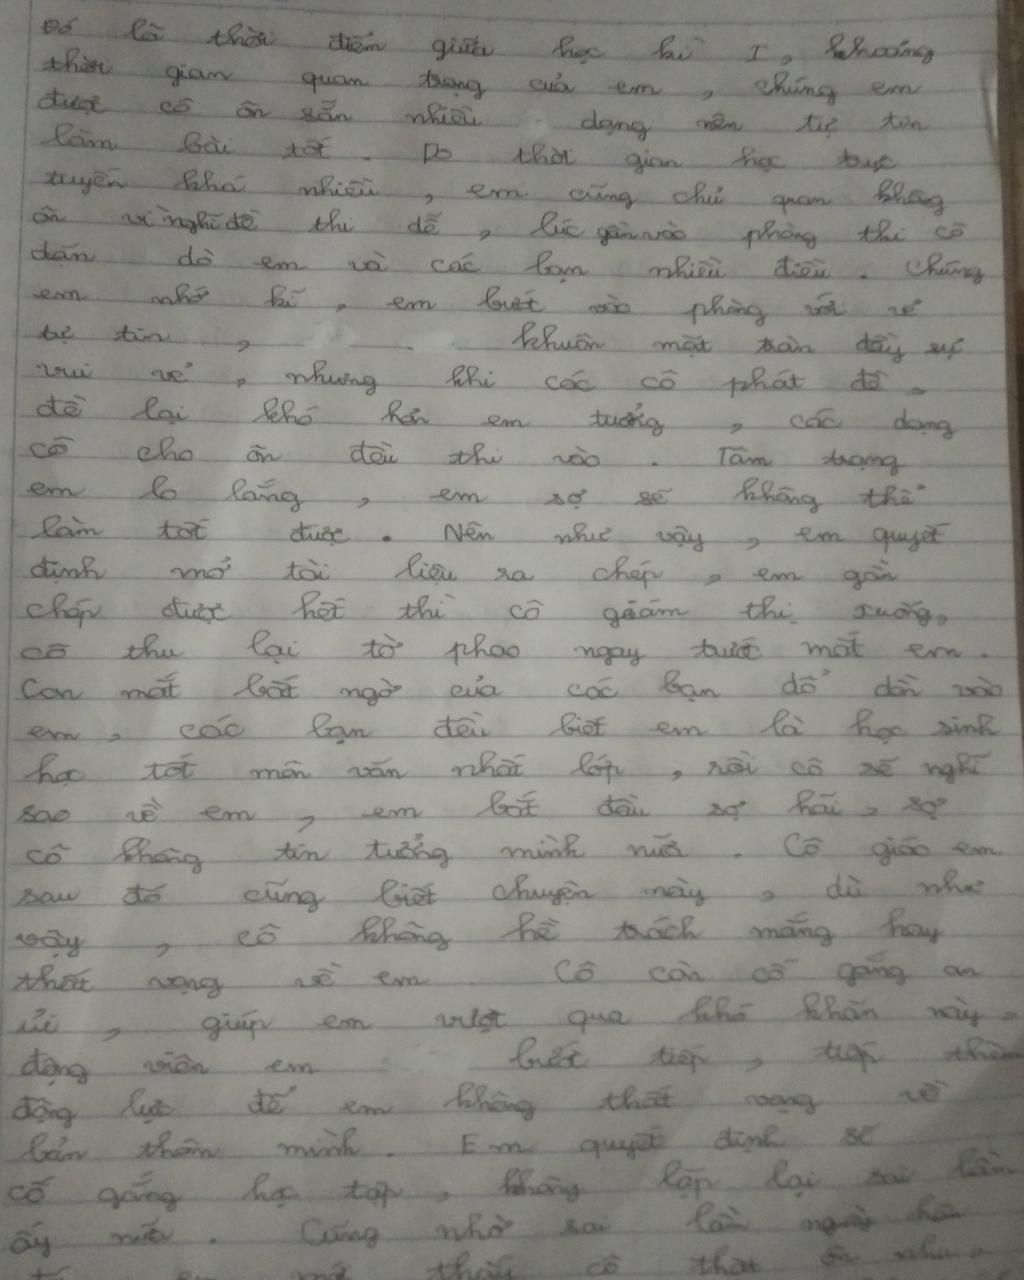 Đó là thời điểm giữa học kì I, khoảng
thời gian quan trọng của em, chúng em
được cô ôn sẵn nhiều dạng nên tự tin
làm bài tốt. Do thời gian học trực
tuyến khá nhiều, em cũng chủ quan không
ôn vì nghĩ đề thi dễ, lúc gần vào phòng thi cô
dặn dò em và các bạn nhiều điều. Chúng
em nhớ kĩ, em bước vào phòng với vẻ
tự tin, khuôn mặt tràn đầy sự
vui vẻ, nhưng khi các cô phát đề
đề lại khó hơn em tưởng, các dạng
cô cho ôn đều thi vào. Tâm trạng
em lo lắng, em sợ sẽ không thể
làm tốt được. Nên như vậy, em quyết
định mở tài liệu ra chép, em gần
chép được hết thì cô giám thị xuống,
cô thu lại tờ phao ngay trước mắt em.
Con mắt bất ngờ của các bạn đổ dồn vào
em, các bạn đều biết em là học sinh
học tốt môn văn nhất lớp, rồi cô sẽ nghĩ
sao về em, em bắt đầu sợ hãi, sợ
cô không tin tưởng mình nữa. Cô giáo em
sau đó cũng biết chuyện này, dù như
vậy, cô không hề trách mắng hay
thất vọng về em Cô còn cố gắng an
ủi, giúp em vượt qua khó khăn này,
động viên em bước tiếp, tiếp thêm
động lực để em không thất vọng về
bản thân mình. Em quyết định sẽ
cố gắng học tập, không lặp lại sai lầm
ấy nữa. Cũng nhờ sai lầm
thấy cô